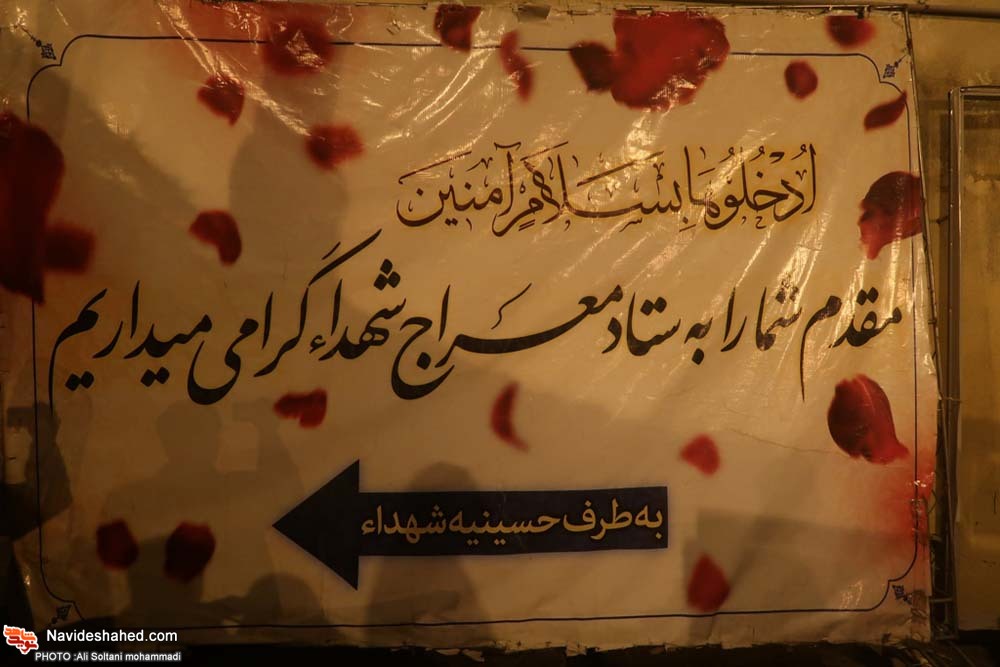 اُدْخُلُوهَا بِسَلَامٍ آمَنِینَ
مقدم شما را به ستاد معراج شهداء گرامی میداریم
به طرف حسینیه شهداء
Navideshahed.com
PHOTO :Ali Soltani mohammadi